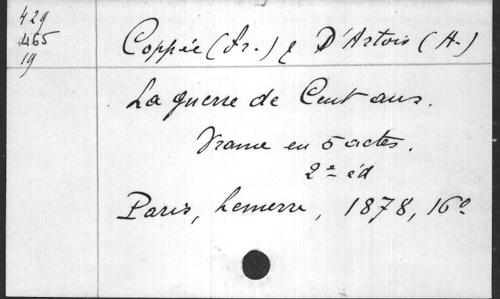 429
465
19
Coppée (Fr.) & D'Artois (A.)
La guerre de Cent ans.
Drame en 5 actes.
2e éd
Paris, Lemerre, 1878, 16º